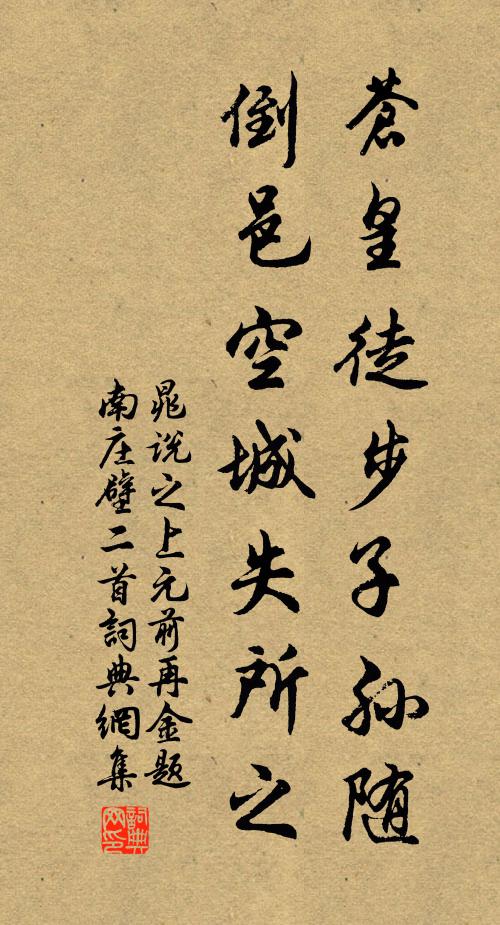 蒼皇徒步子孙随
倒邑空城失所之
晁說之上元前再金題
南庄壁二首詞典網集
詞典网印